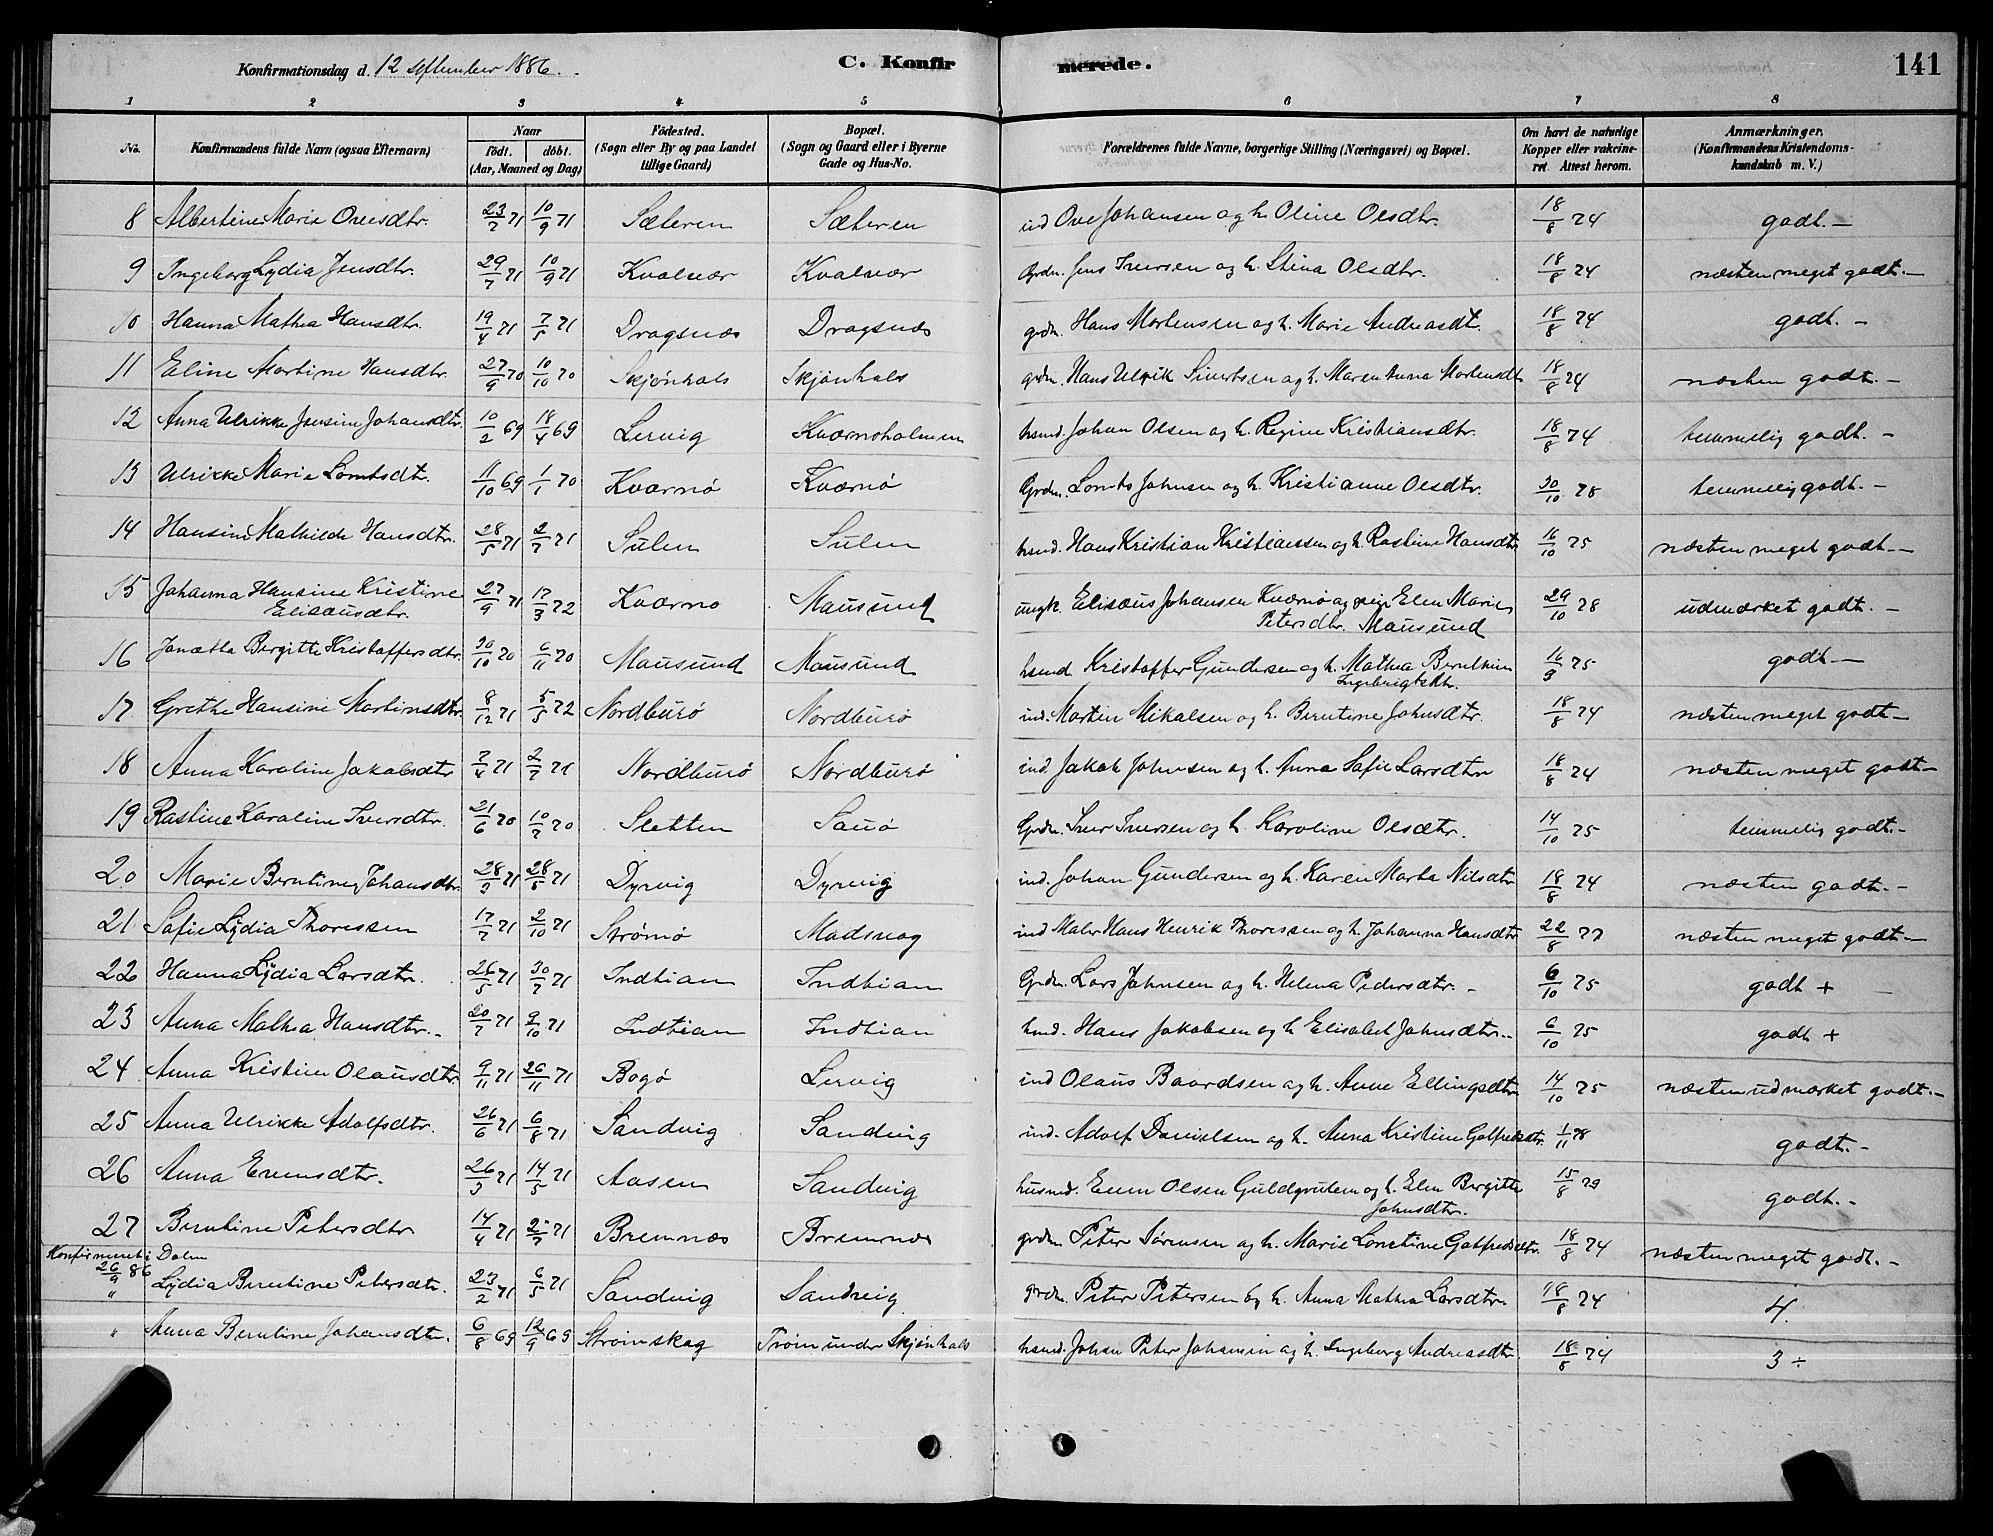 Konfirmationsdag d. 12 September 1886.
C. Konfirmerede.
141
1 2 3 4 5 6 7 8
No.
Konfirmandens fulde Navn (ogsaa Efternavn)
Naar
födt. döbt.
(Aar, Maaned og Dag)
Födested.
(Sogn eller By og paa Landet
tillige Gaard)
Bopæl.
(Sogn og Gaard eller i Byerne
Gade og Hus-No.
Forældrenes fulde Navne, borgerlige Stilling (Næringsvei) og Bopæl.
Om havt de naturlige
Kopper eller vakcine-
ret Attest herom.
Anmærkninger.
(Konfirmandens Kristendoms-
kundskab m. V.)
8 Albertine Marie Ovesdtr. 23/7 71 10/9 71 Sæteren Sæteren ind Ove Johansen og h. Oline Olsdtr. 18/8 74 godt. -
9 Ingeborg Lydia Jensdtr. 29/7 71 10/9 71 Kvalvær Kvalvær Grdm. Jens Iversen og h. Stina Olsdtr. 18/8 74 næsten meget godt. -
10 Hanna Mathea Hansdtr. 19/4 71 7/5 71 Dragsnæs Dragsnæs grdm. Hans Mortensen og h. Marie Andreasdt. 18/8 74 godt. -
11 Eline Martine Hansdtr. 27/9 70 10/10 70 Skjönhals Skjönhals grdm. Hans Ulrik Sivertsen og h. Maren Anna Mortensdt 18/8 74 næsten godt. -
12 Anna Ulrikke Jensine Johansdtr. 10/2 69 18/4 69 Lervig Kværnsholmen hsmd. Johan Olsen og h. Regine Kristiansdtr. 18/8 74 temmelig godt. -
13 Ulrikke Marie Lorntsdt. 11/10 69 1/1 70 Kværnø Kværnø Grdm. Lornts Johnsen og h. Kristianne Olsdtr. 30/10 78 temmelig godt. -
14 Hansine Mathilde Hansdtr. 28/5 71 2/7 71 Sulen Sulen hsmd. Hans Kristian Kristianssen og h. Rastine Hansdtr 16/10 75 næsten meget godt. -
15 Johanna Hansine Kristine
Elisæusdtr. 27/9 71 17/3 72 Kværnø Mausund ungk. Elisæus Johansen Kværnø og pige Elen Marie
Petersdtr. Mausund 29/10 78 udmærket godt. -
16 Jonetta Bergitte Kristoffersdtr. 30/10 70 6/11 70 Mausund Mausund hsmd. Kristoffer Gundersen og h. Mathea Bernthine
Ingebrigtsdtr. 16/9 75 godt -
17 Grethe Hansine Martinsdtr. 8/12 71 5/5 72 Nordburø Nordburø ind. Martin Mikalsen og h. Berntine Johnsdtr. 18/8 74 næsten meget godt -
18 Anna Karoline Jakobsdtr 7/4 71 2/7 71 Nordburø Nordburø ind. Jakob Johnsen og h. Anna Sofie Larsdtr 18/8 74 næsten meget godt -
19 Rastine Karoline Iversdtr. 21/6 70 10/7 70 Sletten Sauø Grdm. Iver Iversen og h. Karoline Olsdtr. 14/10 75 temmelig godt. -
20 Marie Berntine Johansdtr. 28/3 71 28/5 71 Dyrvig Dyrvig ind. Johan Gundersen og h. Karen Marta Nilsdtr 18/8 74 næsten godt. -
21 Sofie Lydia Thoressen 17/7 71 2/10 71 Strømø Madsvag ind Maler Hans Henrik Thoressen og h. Johanna Hansdtr 22/8 77 næsten meget godt. -
22 Hanna Lydia Larsdtr. 26/5 71 30/7 71 Indtian Indtian Grdm. Lars Johnsen og h. Helena Pedersdtr. - 6/10 75 godt +
23 Anna Mathea Hansdtr. - 20/7 71 9/10 71 Indtian Indtian hsmd. Hans Jakobsen og h. Elisabet Johnsdtr. - 6/10 75 godt +
24 Anna Kristine Olausdtr. 9/11 71 26/11 71 Bogø Lervig ind Olaus Baardsen og h. Anne Ellingsdtr 14/10 75 næsten udmærket godt. -
25 Anna Ulrikke Adolfsdtr. 26/6 71 6/8 71 Sandvig Sandvig ind. Adolf Danielsen og h. Anna Kristine Galfredsdtr. 1/11 78 godt. -
26 Anna Evensdtr. 26/3 71 14/5 71 Aasen Sandvig husmd. Even Olsen Guldgruten og h. Elen Bergitte
Johnsdtr. 15/8 79 godt. -
27 Berntine Petersdtr 14/4 71 2/7 71 Bremnæs Bremnæs grdm Peter Sørensen og h. Marie Lorntine Galfredsdtr. 18/8 74 næsten meget godt. -
Konfirmeret i Dolm
26/9 86
" Lydia Berntine Petersdtr. 23/2 71 6/5 71 Sandvig Sandvig grdm. Peter Petersen og h. Anna Mathea Larsdtr. 18/8 74 4.
" Anna Berntine Johansdtr. 6/8 69 12/9 69 Strömskag Tröm under Skjønhals hsmd. Johan Peter Johansen og h. Ingeborg Andreasdtr. 18/8 74 3 ÷